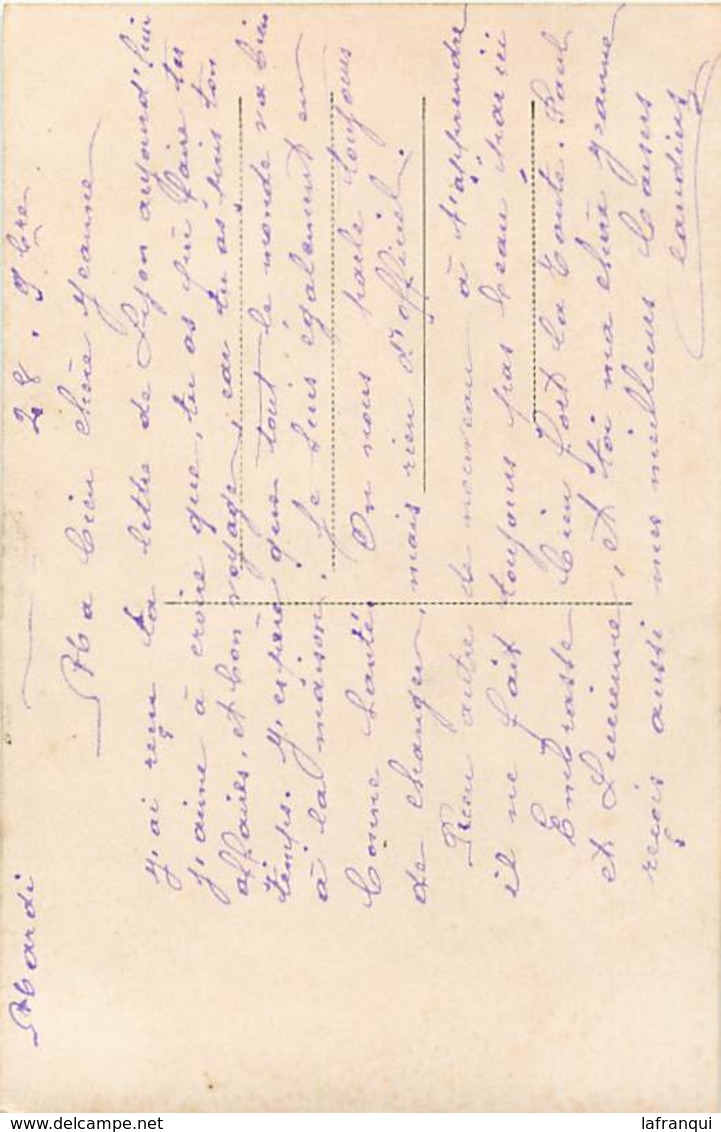 Mardi 28. 9bre
Ma bien chère Jeanne
J'ai reçu ta lettre de Lyon aujourd'hui
J'aime à croire que, tu as pû faire tes
affaires, et bon voyage, car tu as pris ton
temps. J'espère que tout le monde va bien
à la maison. Je suis également en
bonne santé. On nous parle toujours
de changer, mais rien d'officiel.
Rien autre de nouveau à t'apprendre
il ne fait toujours pas beau par ici
Embrasse bien fort la Tante. Paul
et Lucienne, et toi ma chère Jeanne
reçois aussi mes meilleurs baisers
Claudius
delcampe.net
lafranqui